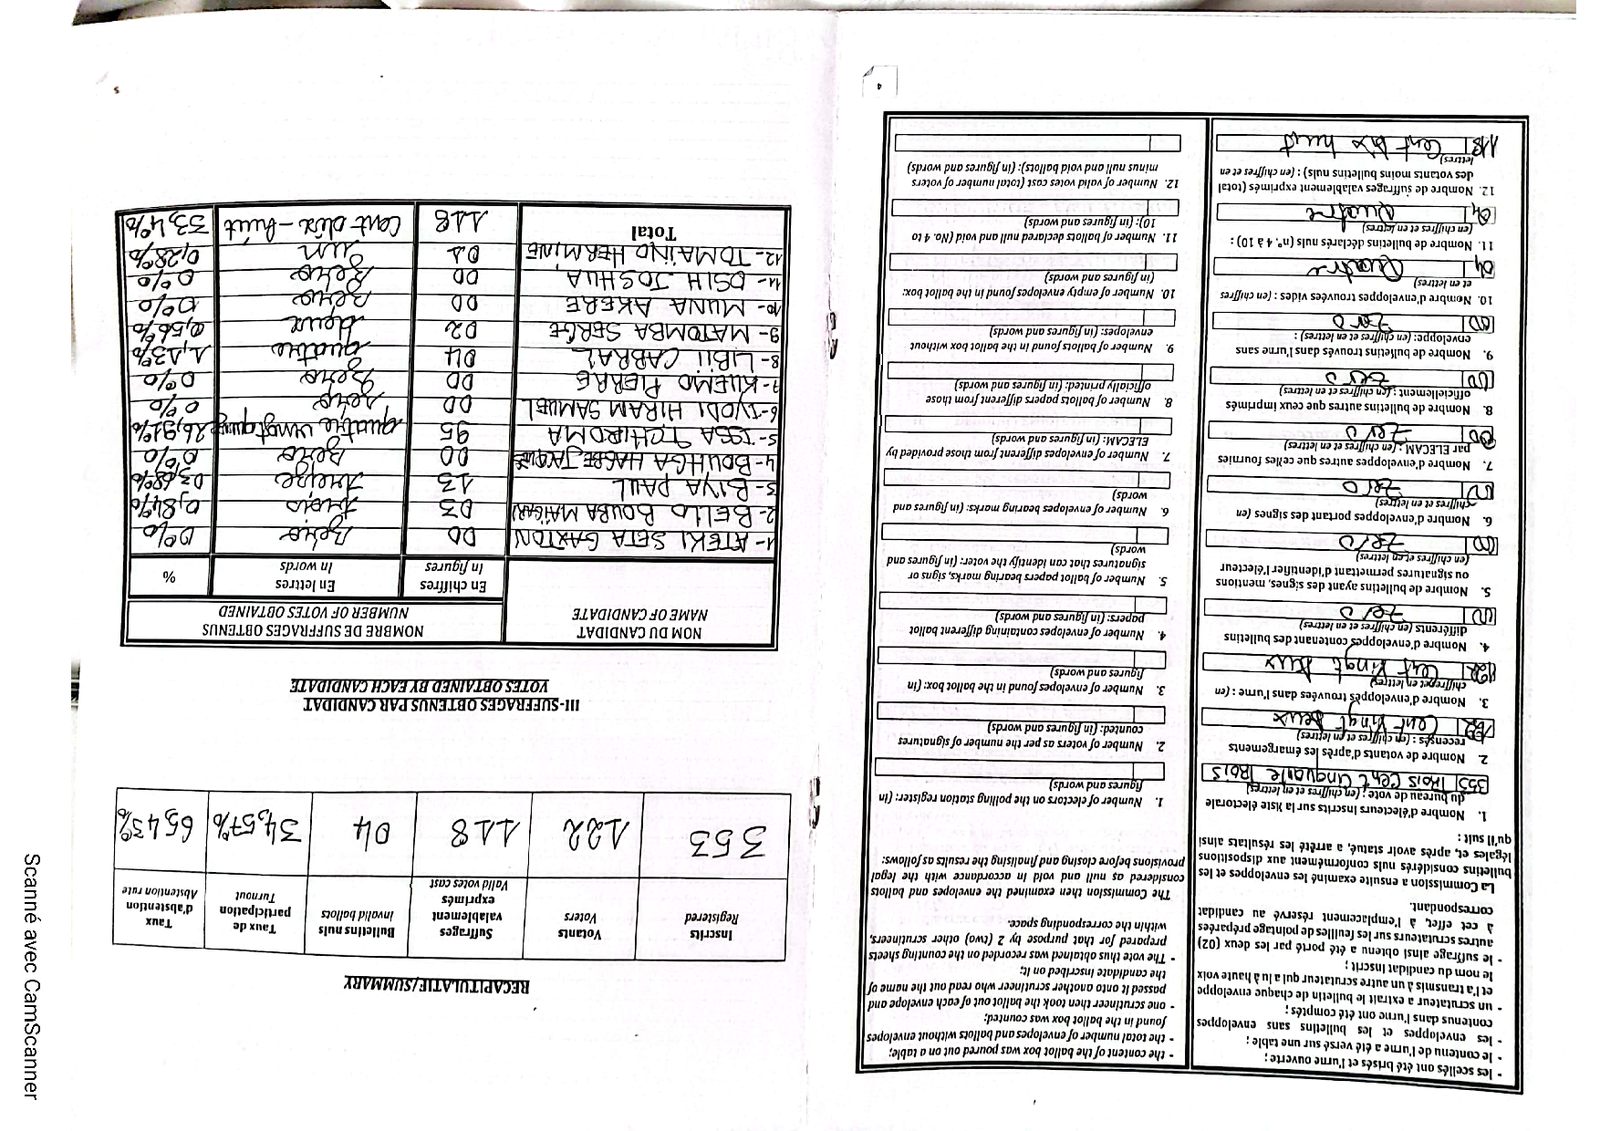 - les scellés ont été brisés et l'urne ouverte ;
- le contenu de l'urne a été versé sur une table ;
- les enveloppes et les bulletins sans enveloppes
contenus dans l'urne ont été comptés ;
- un scrutateur a extrait le bulletin de chaque enveloppe
et l'a transmis à un autre scrutateur qui a lu à haute voix
le nom du candidat inscrit ;
- le suffrage ainsi obtenu a été porté par les deux (02)
autres scrutateurs sur les feuilles de pointage préparées
à cet effet, à l'emplacement réservé au candidat
correspondant.
La Commission a ensuite examiné les enveloppes et les
bulletins considérés nuls conformément aux dispositions
légales et, après avoir statué, a arrêté les résultats ainsi
qu'il suit :
1. Nombre d'électeurs inscrits sur la liste électorale
du bureau de vote : (en chiffres et en lettres)
353 Trois Cent Cinquante Trois
2. Nombre de votants d'après les émargements
recensés : (en chiffres et en lettres)
122 Cent Vingt Deux
3. Nombre d'enveloppes trouvées dans l'urne : (en
chiffres et en lettres)
122 Cent Vingt Deux
4. Nombre d'enveloppes contenant des bulletins
différents (en chiffres et en lettres)
00 Zero
5. Nombre de bulletins ayant des signes, mentions
ou signatures permettant d'identifier l'électeur
(en chiffres et en lettres)
00 Zero
6. Nombre d'enveloppes portant des signes (en
chiffres et en lettres)
00 Zero
7. Nombre d'enveloppes autres que celles fournies
par ELECAM : (en chiffres et en lettres)
00 Zero
8. Nombre de bulletins autres que ceux imprimés
officiellement : (en chiffres et en lettres)
00 Zero
9. Nombre de bulletins trouvés dans l'urne sans
enveloppe: (en chiffres et en lettres) :
00 Zero
10. Nombre d'enveloppes trouvées vides : (en chiffres
et en lettres)
04 Quatre
11. Nombre de bulletins déclarés nuls (n°. 4 à 10) :
(en chiffres et en lettres)
04 Quatre
12. Nombre de suffrages valablement exprimés (total
des votants moins bulletins nuls) : (en chiffres et en
lettres)
118 Cent dix huit
- the content of the ballot box was poured out on a table;
- the total number of envelopes and ballots without envelopes
found in the ballot box was counted;
- one scrutineer then took the ballot out of each envelope and
passed it onto another scrutineer who read out the name of
the candidate inscribed on it;
- The vote thus obtained was recorded on the counting sheets
prepared for that purpose by 2 (two) other scrutineers,
within the corresponding space.
The Commission then examined the envelopes and ballots
considered as null and void in accordance with the legal
provisions before closing and finalising the results as follows:
1. Number of electors on the polling station register: (in
figures and words)
2. Number of voters as per the number of signatures
counted: (in figures and words)
3. Number of envelopes found in the ballot box: (in
figures and words)
4. Number of envelopes containing different ballot
papers: (in figures and words)
5. Number of ballot papers bearing marks, signs or
signatures that can identify the voter: (in figures and
words)
6. Number of envelopes bearing marks: (in figures and
words)
7. Number of envelopes different from those provided by
ELECAM: (in figures and words)
8. Number of ballots papers different from those
officially printed: (in figures and words)
9. Number of ballots found in the ballot box without
envelopes: (in figures and words)
10. Number of empty envelopes found in the ballot box:
(in figures and words)
11. Number of ballots declared null and void (No. 4 to
10): (in figures and words)
12. Number of valid votes cast (total number of voters
minus null and void ballots): (in figures and words)
4
RECAPITULATIF/SUMMARY
Inscrits Registered Votants Voters Suffrages valablement exprimés Valid votes cast Bulletins nuls Invalid ballots Taux de participation Turnout Taux d'abstention Abstention rate
353 122 118 04 34,57% 65,43%
III-SUFFRAGES OBTENUS PAR CANDIDAT
VOTES OBTAINED BY EACH CANDIDATE
NOM DU CANDIDAT NAME OF CANDIDATE NOMBRE DE SUFFRAGES OBTENUS
NUMBER OF VOTES OBTAINED
En chiffres In figures En lettres In words %
1- ATEKI SETA CAXTON 00 Zéro 0%
2- BELLO BOUBA MAIGARI 03 trois 0,84%
3- BIYA PAUL 13 treize 03,68%
4- BOUHGA HAGBE JACQUES 00 Zero 0%
5- ISSA TCHIROMA 95 quatre vingt quinze 26,91%
6- IYODI HIRAM SAMUEL 00 zero 0%
7- KUEMO PIERRE 00 Zero 0%
8- LIBII CABRAL 04 quatre 1,13%
9- MATOMBA SERGE 02 deux 0,56%
10- MUNA AKERE 00 Zero 0%
11- OSIH JOSHUA 00 Zero 0%
12- TOMAINO HERMINE 01 un 0,28%
Total 118 Cent dix-huit 33,4%
5
Scanné avec CamScanner